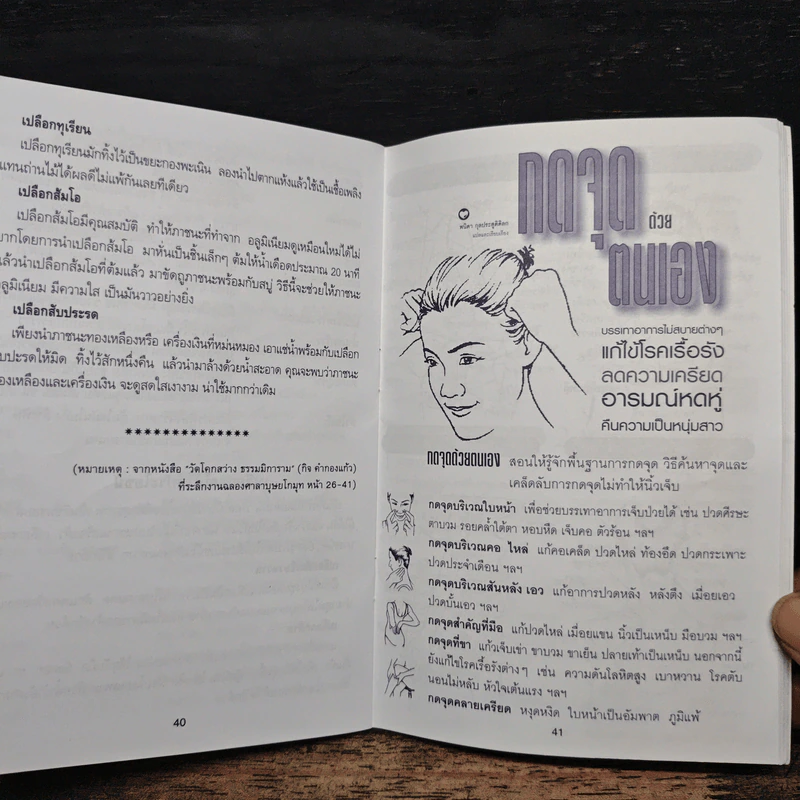 เปลือกทุเรียน
เปลือกทุเรียนมักทิ้งไว้เป็นขยะกองพะเนิน ลองนำไปตากแห้งแล้วใช้เป็นเชื้อเพลิง
แทนถ่านไม้ได้ผลดีไม่แพ้กันเลยทีเดียว
เปลือกส้มโอ
เปลือกส้มโอมีคุณสมบัติ ทำให้ภาชนะที่ทำจาก อลูมิเนียมดูเหมือนใหม่ได้ไม่
ยากโดยการนำเปลือกส้มโอ มาหั่นเป็นชิ้นเล็กๆ ต้มให้น้ำเดือดประมาณ 20 นาที
แล้วนำเปลือกส้มโอที่ต้มแล้ว มาขัดถูภาชนะพร้อมกับสบู่ วิธีนี้จะช่วยให้ภาชนะ
ลูมิเนียม มีความใส เป็นมันวาวอย่างยิ่ง
เปลือกสับประรด
เพียงนำภาชนะทองเหลืองหรือ เครื่องเงินที่หม่นหมอง เอาแช่น้ำพร้อมกับเปลือก
ับประรดให้มิด ทิ้งไว้สักหนึ่งคืน แล้วนำมาล้างด้วยน้ำสะอาด คุณจะพบว่าภาชนะ
องเหลืองและเครื่องเงิน จะดูสดใสเงางาม น่าใช้มากกว่าเดิม
**************
(หมายเหตุ : จากหนังสือ "วัดโคกสว่าง ธรรมมิการาม" (กิจ คำกองแก้ว)
ที่ระลึกงานฉลองศาลาบุษยโกมุท หน้า 26-41)
40
กดจุด
ด้วย
ตนเอง
บรรเทาอาการไม่สบายต่างๆ
แก้ไขโรคเรื้อรัง
ลดความเครียด
อารมณ์หดหู่
คืนความเป็นหนุ่มสาว
กดจุดด้วยตนเอง สอนให้รู้จักพื้นฐานการกดจุด วิธีค้นหาจุดและ
เคล็ดลับการกดจุดไม่ทำให้นิ้วเจ็บ
กดจุดบริเวณใบหน้า เพื่อช่วยบรรเทาอาการเจ็บป่วยได้ เช่น ปวดศีรษะ
ตาบวม รอยคล้ำใต้ตา หอบหืด เจ็บคอ ตัวร้อน ฯลฯ
กดจุดบริเวณคอ ไหล่ แก้คอเคล็ด ปวดไหล่ ท้องอืด ปวดกระเพาะ
ปวดประจำเดือน ฯลฯ
กดจุดบริเวณสันหลัง เอว แก้อาการปวดหลัง หลังตึง เมื่อยเอว
ปวดบั้นเอว ฯลฯ
กดจุดสำคัญที่มือ แก้ปวดไหล่ เมื่อยแขน นิ้วเป็นเหน็บ มือบวม ฯลฯ
กดจุดที่ขา แก้วเจ็บเข่า ขาบวม ขาเย็น ปลายเท้าเป็นเหน็บ นอกจากนี้
ยังแก้ไขโรคเรื้อรังต่างๆ เช่น ความดันโลหิตสูง เบาหวาน โรคตับ
นอนไม่หลับ หัวใจเต้นแรง ฯลฯ
กดจุดคลายเครียด หงุดหงิด ใบหน้าเป็นอัมพาต ภูมิแพ้
41